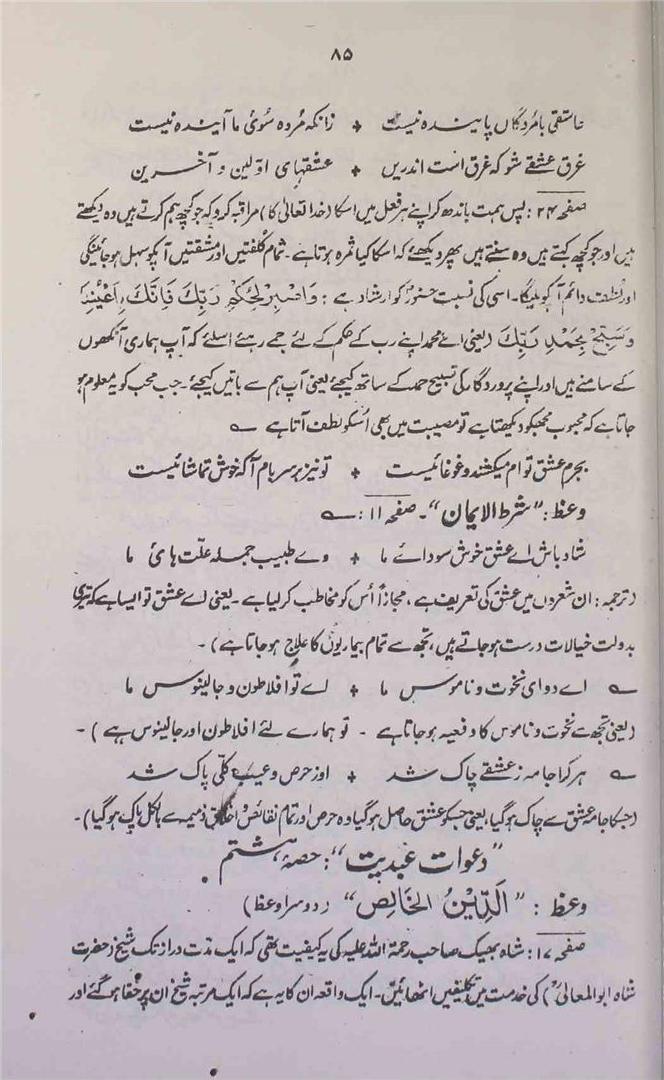 ۸۵
عاشقی با مردگاں پایندہ نیست ٭ زانکہ مردہ سوئ ما آیندہ نیست
غرق عشقے شو کہ غرق است اندریں ٭ عشقہای اوّلین و آخرین
صفحہ ۲۴: پس ہمت باندھ کر اپنے ہر فعل میں اسکا (خدا تعالیٰ کا) مراقبہ کرو کہ جو کچھ ہم کرتے ہیں وہ دیکھتے
ہیں اور جو کچھ کہتے ہیں وہ سنتے ہیں پھر دیکھئے کہ اسکا کیا ثمرہ ہوتا ہے۔ تمام کلفتیں اور مشقتیں آپکو سہل ہوجائینگی
اور لطف دائم آپکو ملیگا۔ اسی کی نسبت حضورؐ کو ارشاد ہے: وَاصْبِرْ لِحُكْمِ رَبِّكَ فَإِنَّكَ بِأَعْيُنِنَا
وَسَبِّحْ بِحَمْدِ رَبِّكَ (یعنی اے محمد اپنے رب کے حکم کے لئے جمے رہئے اسلئے کہ آپ ہماری آنکھوں
کے سامنے ہیں اور اپنے پروردگار کی تسبیح حمد کے ساتھ کیجئے یعنی آپ ہم سے باتیں کیجئے۔ جب محب کو یہ معلوم ہو
جاتا ہے کہ محبوب مجھکو دیکھتا ہے تو مصیبت میں بھی اُسکو لطف آتا ہے ؎
بجرم عشق توام میکشند و غوغائیست ٭ تو نیز برسر بام آ کہ خوش تماشائیست
وعظ: "شرط الایمان"۔ صفحہ ۱۱: ؎
شاد باش اے عشق خوش سودائے ما ٭ وے طبیب جملہ علّت ہائ ما
(ترجمہ: ان شعروں میں عشق کی تعریف ہے، مجازاً اُس کو مخاطب کرلیا ہے۔ یعنی اے عشق تو ایسا ہے کہ تیری
بدولت خیالات درست ہوجاتے ہیں، تجھ سے تمام بیماریوں کا علاج ہوجاتا ہے)۔
؎ اے دوای نخوت و ناموس ما ٭ اے تو افلاطون و جالینوس ما
(یعنی تجھ سے نخوت و ناموس کا دفعیہ ہوجاتا ہے ۔ تو ہمارے لئے افلاطون اور جالینوس ہے)۔
؎ ہر کرا جامہ ز عشقے چاک شد ٭ او ز حرص و عیب کلّی پاک شد
(جسکا جامہ عشق سے چاک ہوگیا، یعنی جسکو عشق حاصل ہوگیا وہ حرص اور تمام نقائص اخلاق ذمیمہ سے بالکل پاک ہوگیا)۔
"دعوات عبدیت": حصہ، ہشتم
وعظ: "اَلدِّیْنُ الخَالِص" (دوسرا وعظ)
صفحہ ۱۷: شاہ بھیک صاحب رحمۃ اللہ علیہ کی یہ کیفیت تھی کہ ایک مدت دراز تک شیخ (حضرت
شاہ ابوالمعالیؒ) کی خدمت میں تکلیفیں اٹھائیں۔ ایک واقعہ ان کا یہ ہے کہ ایک مرتبہ شیخ ان پر خفا ہوگئے اور